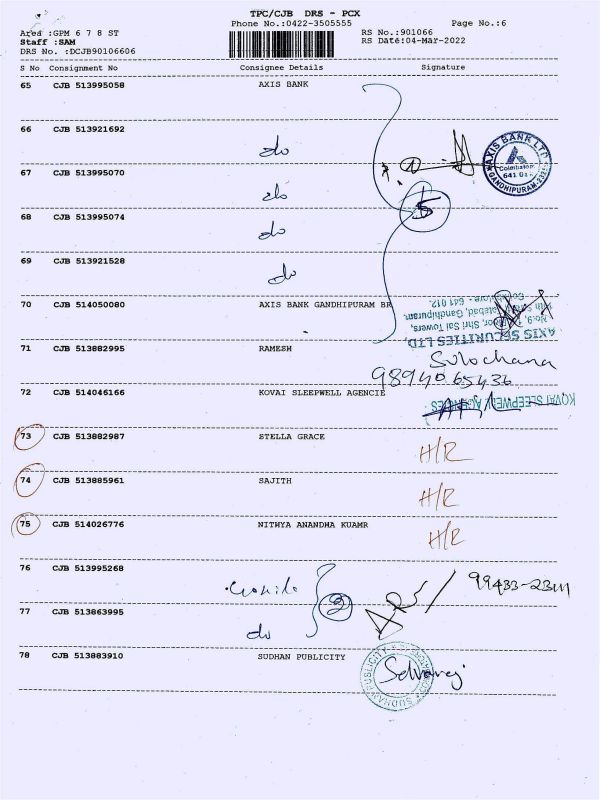 TPC/CJB DRS - PCX
Phone No.:0422-3505555 Page No.:6
Area :GPM 6 7 8 ST RS No.:901066
Staff :SAM RS Date:04-Mar-2022
DRS No. :DCJB90106606
S No Consignment No Consignee Details Signature
65 CJB 513995058 AXIS BANK
66 CJB 513921692 do
67 CJB 513995070 do
5
AXIS BANK LTD
Coimbatore
GANDHIPURAM
68 CJB 513995074 do
69 CJB 513921528 do
70 CJB 514050080 AXIS BANK GANDHIPURAM BR
AXIS SECURITIES LTD,
Shri Sai Towers,
Gandhipuram,
641 012.
71 CJB 513882995 RAMESH Sulochana
98940 65436
72 CJB 514046166 KOVAI SLEEPWELL AGENCIE KOVAI SLEEPWELL AGENCIES
73 CJB 513882987 STELLA GRACE H/R
74 CJB 513885961 SAJITH H/R
75 CJB 514026776 NITHYA ANANDHA KUAMR H/R
76 CJB 513995268 2
77 CJB 513863995 do
78 CJB 513883910 SUDHAN PUBLICITY Selvaraj
SUDHAN PUBLICITY